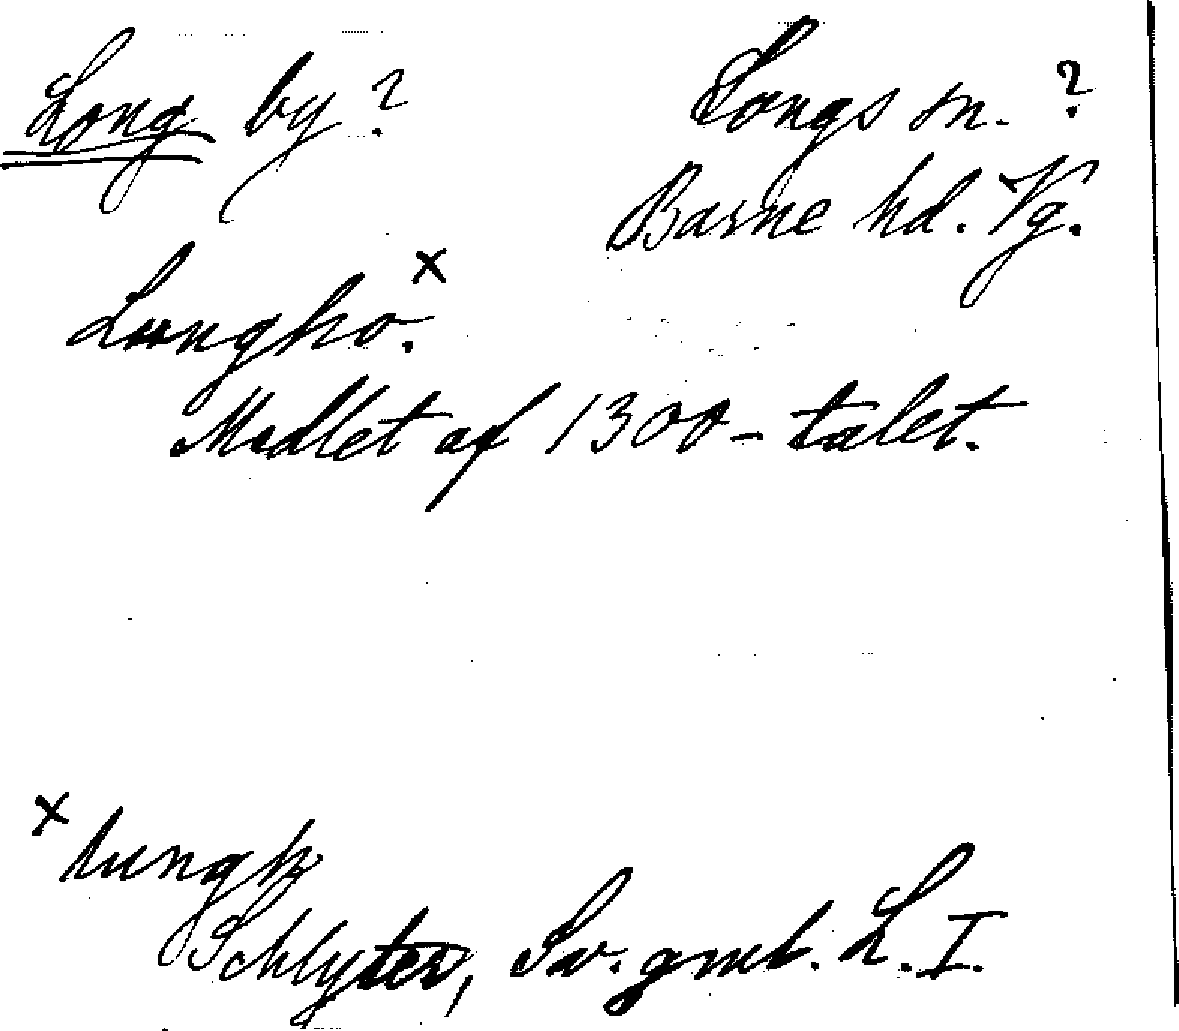 Long by?
Longs sn.?
Barne hd. Vg.
Lungho. x
Medlet af 1300-talet.
x lungh
Schlyter, Sv. gml. L. I.